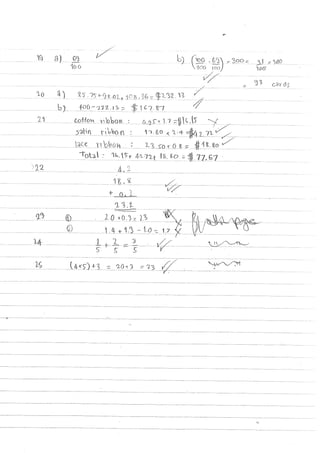 19 a) 69/100 b) (100/100 - 69/100) × 300 = 31/100 × 300
= 93 cards
20 a) 25.75 + 98.02 + 108.36 = $232.13
b) 400 - 232.13 = $167.87
21 cotton ribbon : 0.95 × 17 = $16.15
satin ribbon :
lace ribbon : 23.50 × 0.8 = $18.80
Total : 16.15 + 42.72 + 18.80 = $77.67
22 4.2
18.8
+ 0.2
23.2
23 a) 2.0 + 0.3 = 2.3
b) 1.4 + 1.3 - 1.0 = 1.7
24 1/5 + 2/5 = 3/5
25 (4×5) + 3 = 20 + 3 = 23